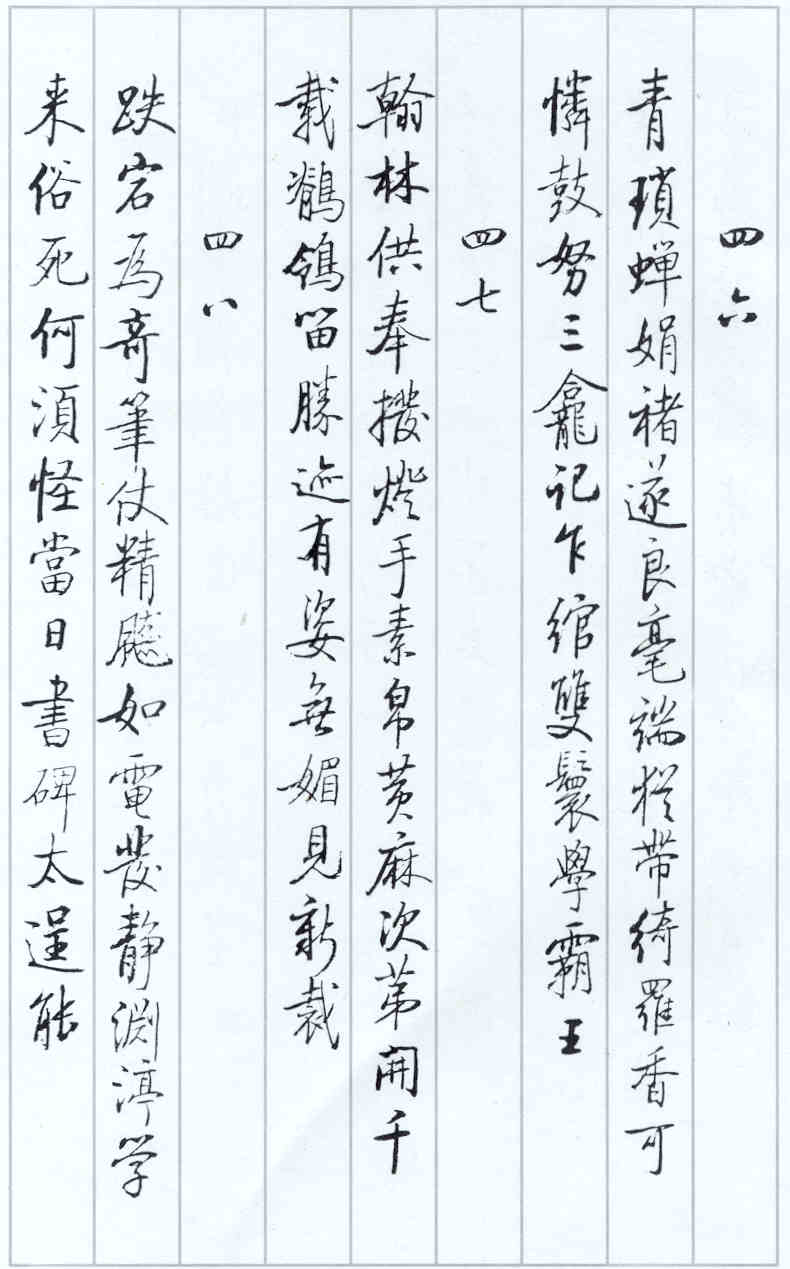 四六
青瑣蝉娟褚遂良毫端猶带綺羅香可
憐鼓努三龕记乍綰雙鬟學霸王
四七
翰林供奉撥燈手素帛黄麻次苐開千
载鶺鴒留勝迹有姿無媚見新裁
四八
跌宕為奇筆仗精飈如電發静渊渟学
来俗死何須怪當日書碑太逞能